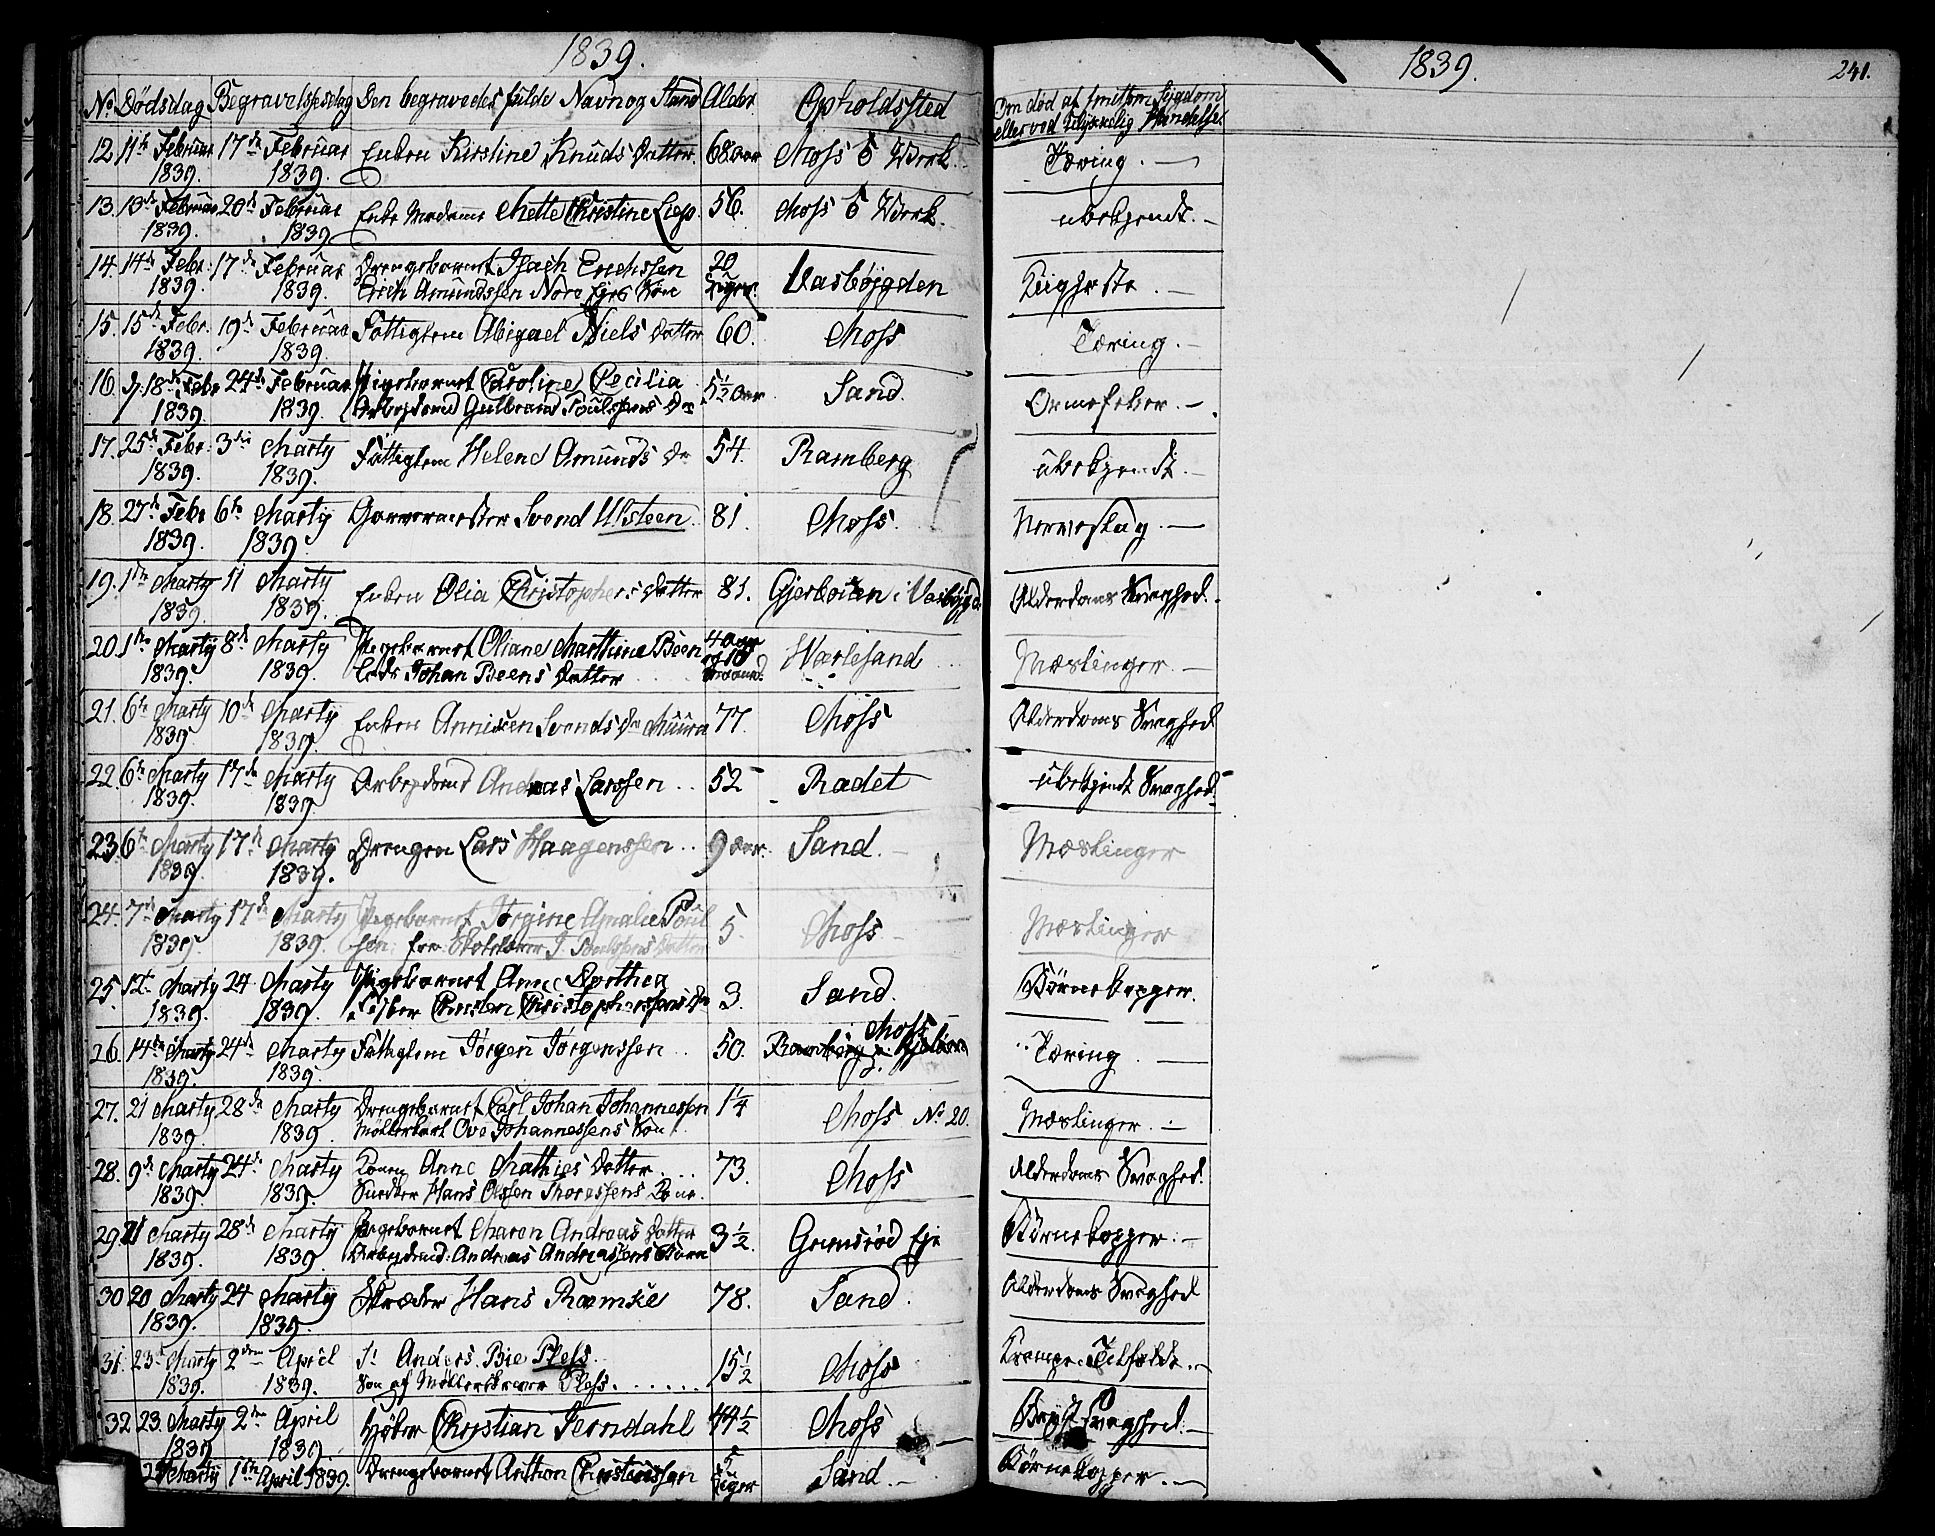 1839.
1839.
241.
No. Dödsdag Begravelsesdag Den begravedes fulde Navn og Stand Alder Opholdssted Om død af smitsom Sygdom
eller ved Ulykkelig Hændelse.
12. 11te Februar 17de Februar Enken Kirstine Knuds Datter. 68 aar Moss Værk. Tæring. —
1839. 1839.
13. 13de Februar 20de Februar Enke Madame Mette Christine Liess. 56. Moss Værk. ubekjendt. —
1839. 1839
14. 14de Febr. 17de Februar Drengebarnet Isach Erichssen 20 Vasbøjgden Kighoste. —
1839. 1839. Erich Amundssen Nore Ejes Søn Uger.
15. 15de Febr. 19de Februar Fattiglem Abigael Niels Datter 60. Moss Tæring. —
1839. 1839.
16. 18de Febr 24de Februar Pigebarnet Caroline Cecilia 5½ Aar Sand. Ormefeber. —
1839. 1839. Arbejdsmd Gulbrand Poulssens Dr
17. 25de Febr. 3die Marty Fattiglem Helene Amunds Dr 54. Ramberg ubekjendt. —
1839. 1839.
18. 27de Febr 6te Marty Garvermester Svend Ulsteen. 81. Moss. Nerveslag. —
1839. 1839.
19. 1ste Marty 11 Marty Enken Olia Christophers Datter 81. Gjerløien i Vasbøjgd. Alderdoms Svaghed.
1839. 1839.
20. 1ste Marty 8de Marty Pigebarnet Oliane Marthine Been 4 Aar Varlesand Mæslinger. —
1839. 1839. Johan Beens Datter og 10 Maaned.
21. 6te Marty 10de Marty Enken Annisken Svends Dr Muura 77. Moss Alderdoms Svaghed
1839. 1839.
22. 6te Marty 17de Marty Arbejdsmd Andreas Larssen.. 52 Rådet ubekjendt Svaghed.
1839. 1839.
23. 6te Marty 17de Marty Drengen Lars Haagenssen.. 9 Aar. Sand. Mæslinger
1839. 1839.
24. 7de Marty 17de Marty Pigebarnet Jørgine Amalie Poul 5. Moss Mæslinger
1839. 1839. sen. J. Poulssens Datter
25 12te Marty 24 Marty Pigebarnet Anne Dorthea 3. Sand. Børnekopper.
1839. 1839. Christen Christopherssens Dr
26. 14de Marty 24de Marty Fattiglem Jørgen Jørgenssen.. 50. Moss Tæring. —
1839. 1839.
27. 21 Marty 28de Marty Drengebarnet Carl Johan Johannessen 1¼ Moss No. 20. Mæslinger. —
1839. 1839. Møllerkarl Ove Johannessens Søn.
28. 9de Marty 24de Marty Konen Anne Mathies Datter.... 73. Moss Alderdoms Svaghed.
1839. 1839. Snedker Hans Olssen Thoressens Kone.
29. 21 Marty 28de Marty Pigebarnet Maren Andreas Datter 3½. Grimsrød Eje Børnekopper. —
1839. 1839. Arbejdsmd. Andreas Andreassens Barn
30 20 Marty 24 Marty Skræder Hans Ramske 78. Sand. Alderdoms Svaghed
1839. 1839.
31. 23de Marty 2den April Sr Anders Bie Pless. 15½ Moss Krampe Tilfælde. —
1839. 1839. Søn af Møllerskriver Pless.......
32 23. Marty 2den April Christian Jerndahl 44½ Moss Bryst Svaghed. —
1839 1839.
Marty 1ste April 1839. Drengebarnet Anthon Christenssen 5 Uger Sand. — Børnekopper. —